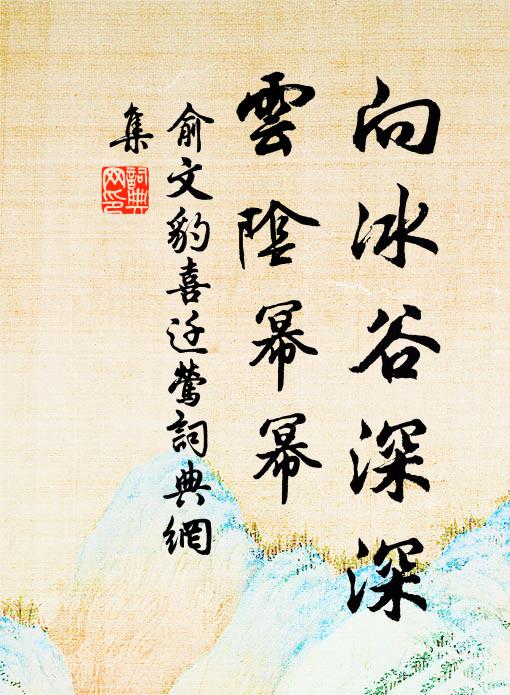 向冰谷深深
雲陰幂幂
俞文豹喜迁鶯詞典網
集
詞典
网印